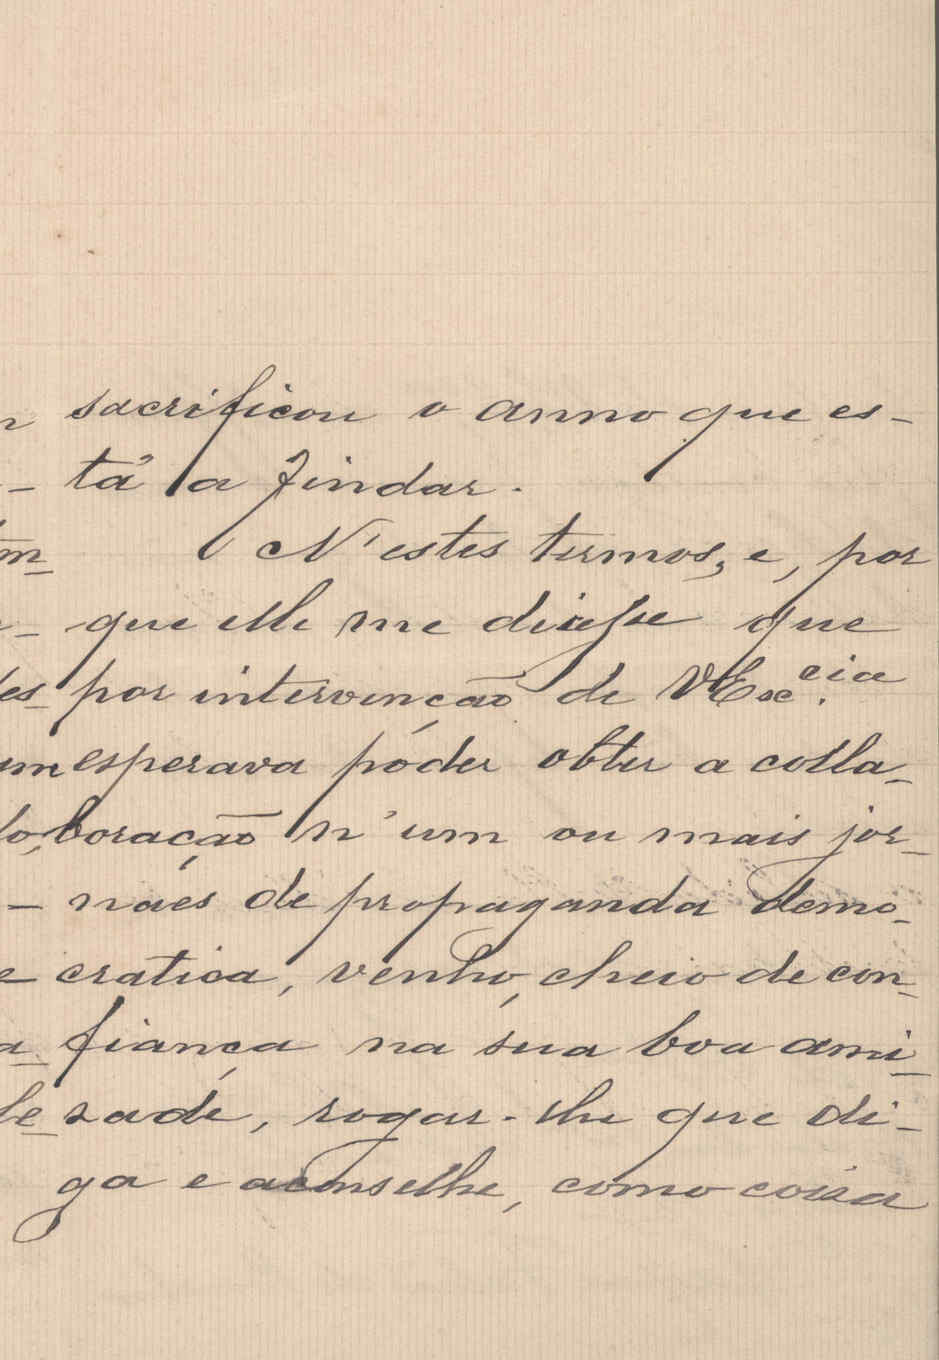 sacrificou o anno que es-
tá a findar.
N'estes termos, e, por
que elle me dissesse que
por intervenção de VExc.cia
esperava póder obter a colla-
boração n'um ou mais jor-
naes de propaganda demo-
cratica, venho, cheio de con-
fiança na sua boa ami-
sade, rogar-lhe que di-
ga e aconselhe, como coisa